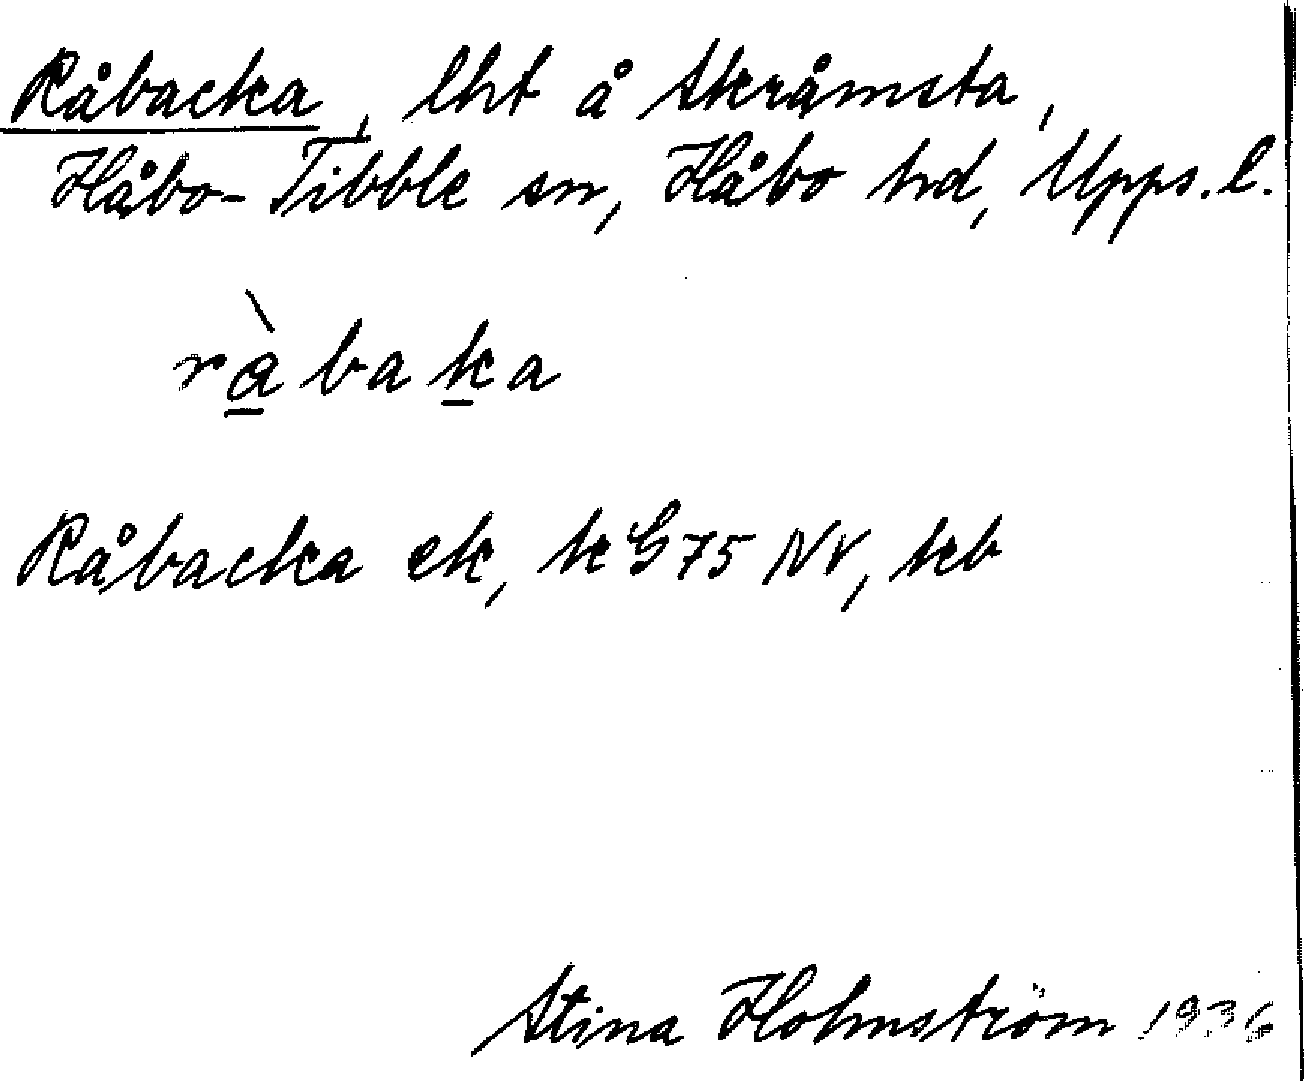 Råbacka, lht å Skråmsta,
Håbo-Tibble sn, Håbo hd, Upps. l.
ràbaka
Råbacka ek, k G 75 NV, kb
Stina Holmström 1936